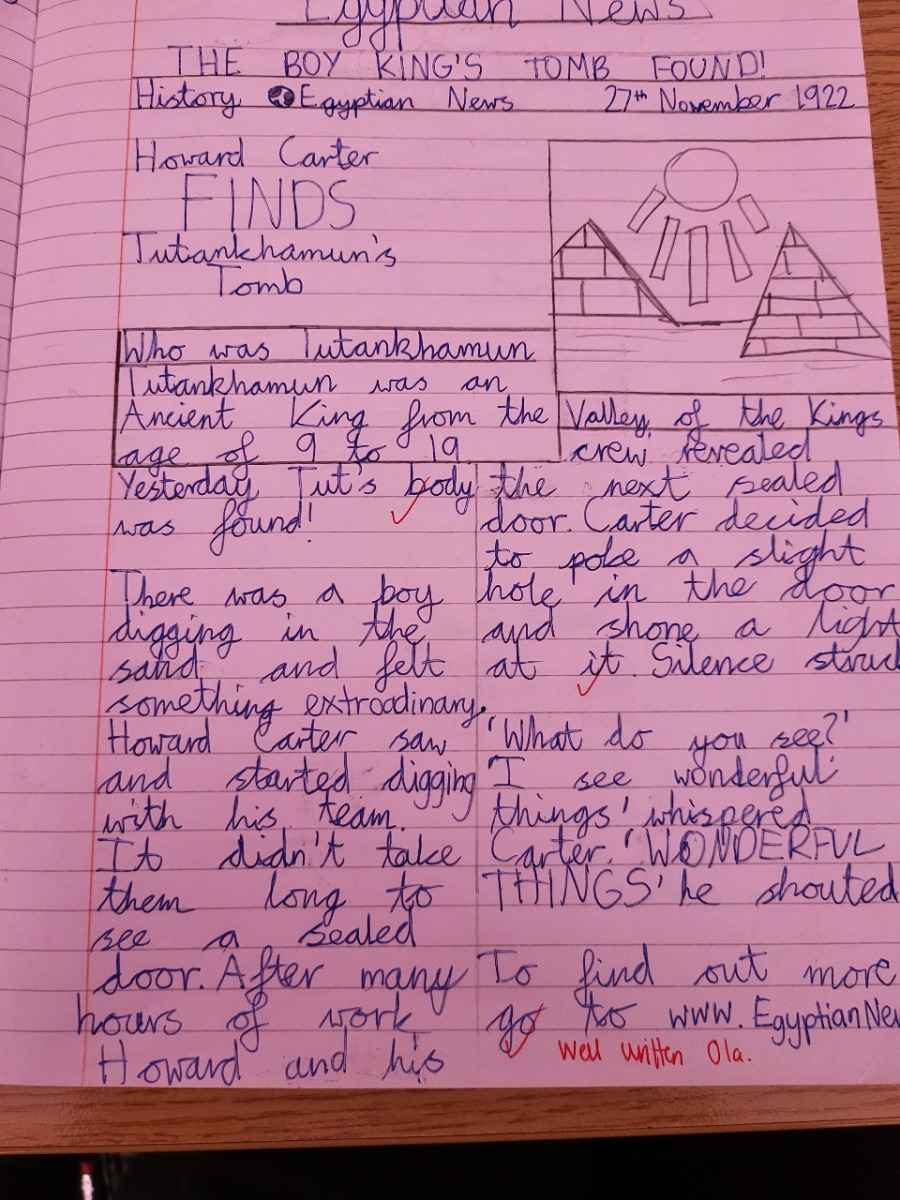 Egyptian News
THE BOY KING'S TOMB FOUND!
History Egyptian News 27th November 1922
Howard Carter
FINDS
Tutankhamun's
Tomb
Who was Tutankhamun
Tutankhamun was an
Ancient King from the
age of 9 to 19
Valley of the Kings
Yesterday Tut's body
was found!
There was a boy
digging in the
sand and felt
something extroadinary.
Howard Carter saw
and started digging
with his team.
It didn't take
them long to
see a sealed
door. After many
hours of work
Howard and his
crew revealed
the next sealed
door. Carter decided
to poke a slight
hole in the door
and shone a light
at it. Silence struck
'What do you see?'
'I see wonderful
things' whispered
Carter. 'WONDERFUL
THINGS' he shouted
To find out more
go to www.EgyptianNew
Well written Ola.